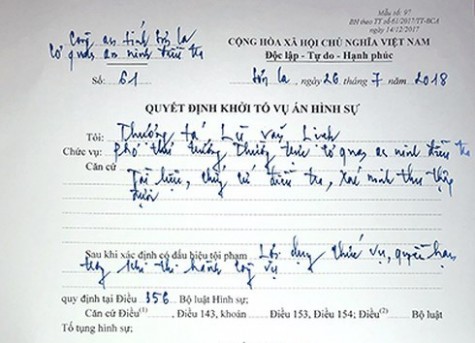 Mẫu số: 97
BH theo TT số 61/2017/TT-BCA
ngày 14/12/2017
Công an tỉnh Sơn La
Cơ quan an ninh điều tra
CỘNG HÒA XÃ HỘI CHỦ NGHĨA VIỆT NAM
Độc lập - Tự do - Hạnh phúc
Số: 61
Sơn La, ngày 26 tháng 7 năm 2018
QUYẾT ĐỊNH KHỞI TỐ VỤ ÁN HÌNH SỰ
Tôi: Thượng tá Lù Văn Linh
Chức vụ: Phó thủ trưởng Thường trực cơ quan an ninh điều tra
Căn cứ
Tài liệu, chứng cứ điều tra, xác minh thu thập
được
Sau khi xác định có dấu hiệu tội phạm Lợi dụng chức vụ, quyền hạn
trong khi thi hành công vụ
quy định tại Điều 356 Bộ luật Hình sự;
Căn cứ Điều(1) , Điều 143, khoản Điều 153, Điều 154; Điều(2) Bộ luật
Tố tụng hình sự;